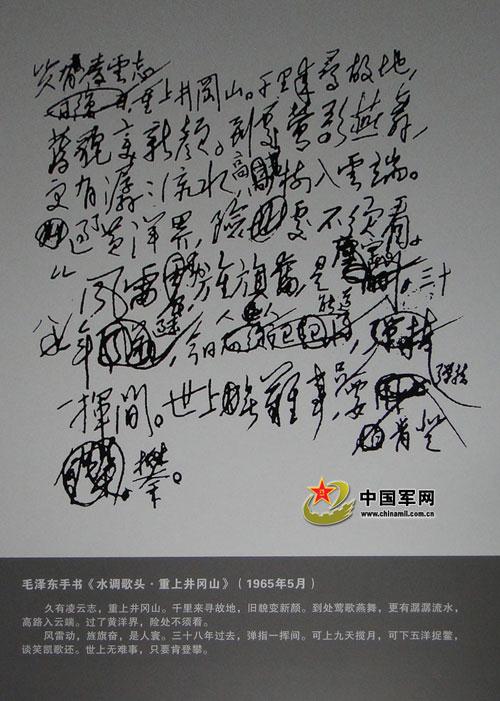 久有凌雲志
重上井岡山。千里来尋故地,
舊貌变新颜。到處鶯歌燕舞,
更有潺潺流水,高路入雲端。
过黄洋界,險處不須看。
風雷動,旌旗奮,是
三十
八年
今日
彈指
一揮間。世上無難事,只要肯登
攀。
中国军网
www.chinamil.com.cn
毛泽东手书《水调歌头·重上井冈山》（1965年5月）
久有凌云志，重上井冈山。千里来寻故地，旧貌变新颜。到处莺歌燕舞，更有潺潺流水，
高路入云端。过了黄洋界，险处不须看。
风雷动，旌旗奋，是人寰。三十八年过去，弹指一挥间。可上九天揽月，可下五洋捉鳖，
谈笑凯歌还。世上无难事，只要肯登攀。